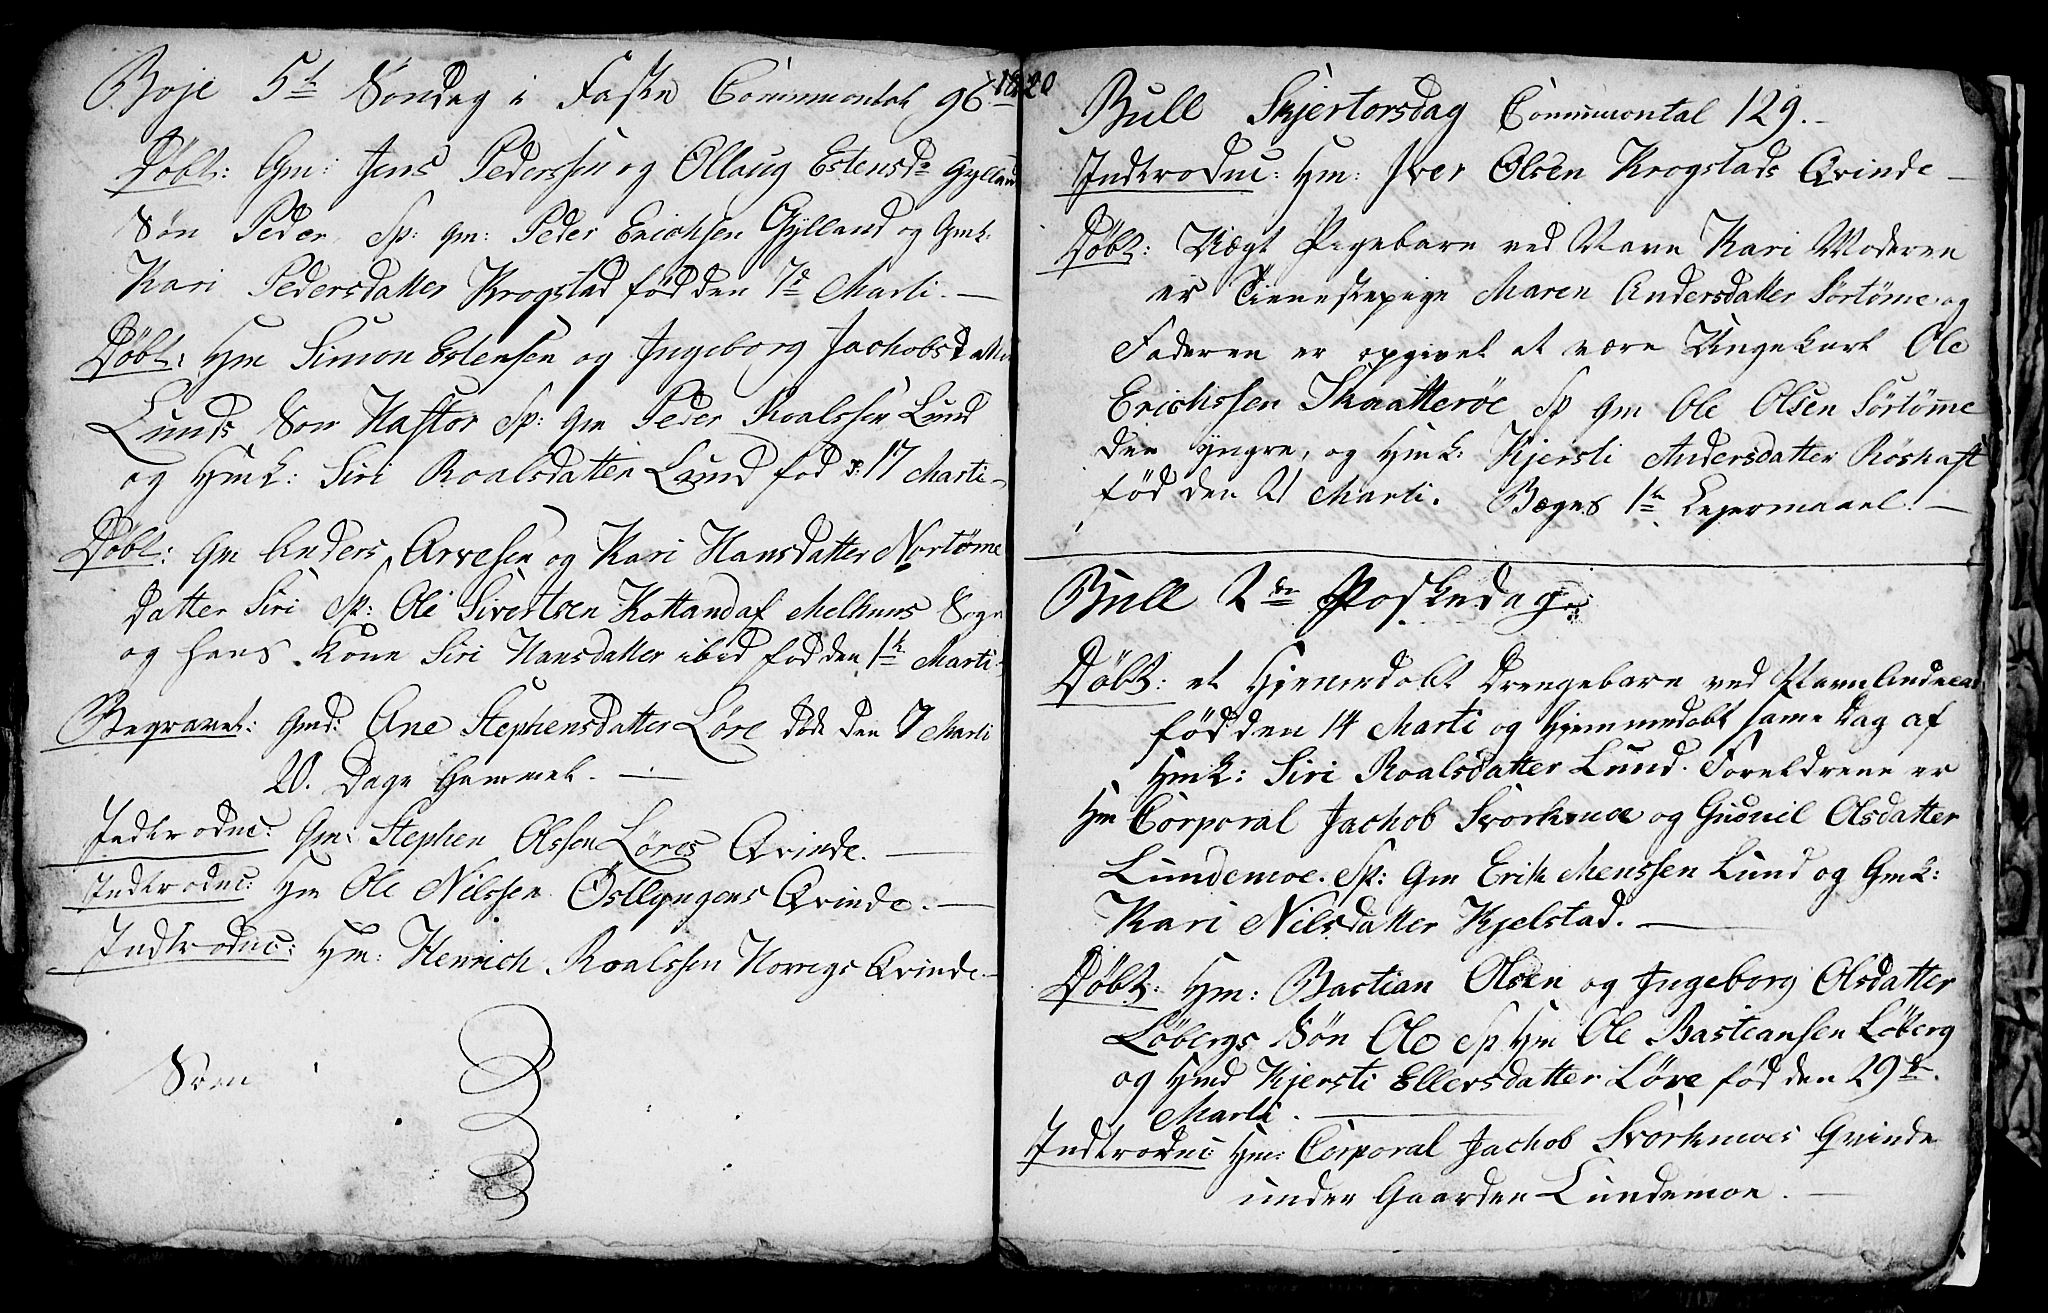 Boje 5te Søndag i Faste Communontal 96
1820
Døbt: Gm: Jens Pederssen og Ollaug Estensdr Gylland
Søn Peder, Sp: gm: Peder Erichsen Gylland og Gmk:
Kari Pedersdatter Krogstad fød den 7de Marti. —
Døbt: Hm Simon Estensen og Ingeborg Jachobsdatter
Lunds Søn Hastor Sp: Gm Peder Roalssen Lund
og Hmk: Siri Roalsdatter Lund fød d: 17 Marti —
Døbt: Gm Anders Arvesen og Kari Hansdatter Nortømme
datter Siri Sp: Ole Sivertsen Kottand af Melhuus Sogn
og hans Kone Siri Hansdatter ibid fød den 1te Marti.
Begravet: Gmd: Ane Stephensdatter Løre døde den 7 Marti
20. Dage Gammel. —
Indtroduc: Gm: Stephen Olssen Løres Qvinde. —
Indtroduc: Hm Ole Nilssen Østlyngens Qvinde. —
Indtroduc: Hm: Henrich Roalssen Horregs Qvinde —
Bull Skjertorsdag Communontal 129. —
Indtroduc: Hm: Iver Olsen Krogstads Qvinde —
Døbt: Uægt Pigebarn ved Navn Kari Moderen
er Tienestepige Maren Andersdatter Sørtømme og
Faderen er opgivet at være Ungekarl Ole
Erichssen Skaatterøe Sp gm Ole Olsen Sørtømme
den yngre, og Hmk: Kjersti Andersdatter Røskaft
fød den 21 Marti. Begges 1te Lejermaael. —
Bull 2den Poskedag.
Døbt: et Hjemmedøbt Drengebarn ved Navn Andreas
fød den 14 Marti og Hjemmedøbt same Dag af
Hmk: Siri Roalsdatter Lund. Foreldrene er
Hm Corporal Jachob Svorkmoe og Gudnil Olsdatter
Lundemoe. Sp: Gm Erik Menssen Lund og Gmk:
Kari Nilsdatter Kjelstad. —
Døbt: Hm: Bastian Olsen og Ingeborg Olsdatter
Løbergs Søn Ole Sp Hm Ole Bastiansen Løberg
og Hmd Kjersti Ellersdatter Løre fød den 29de
Marti. —
Indtroduc: Hm: Corporal Jachob Svorkmoes Qvinde
under Gaarden Lundemoe. —